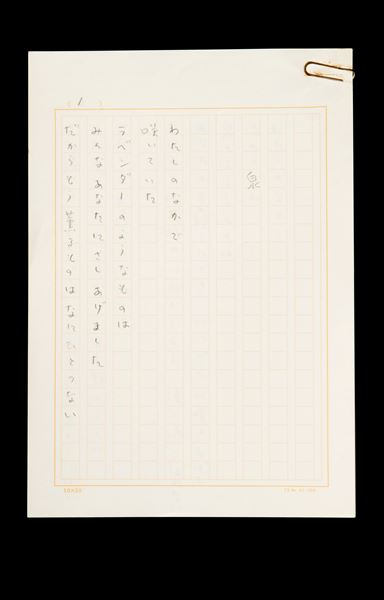 (1)
泉
わたしのなかで
咲いていた
ラベンダーのようなものは
みんなあなたにさしあげました
だからもう薫るものはなにひとつない